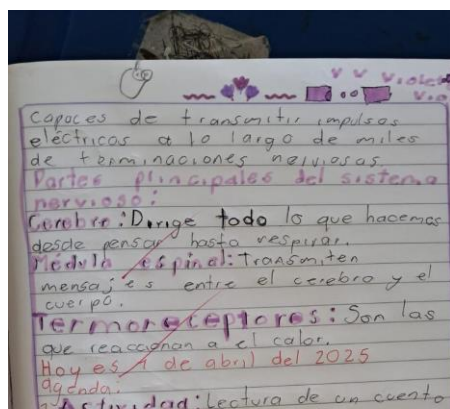 Violet
Vio
capaces de transmitir impulsos
eléctricos a lo largo de miles
de terminaciones nerviosas.
Partes principales del sistema
nervioso:
Cerebro: Dirige todo lo que hacemos
desde pensar hasta respirar.
Médula espinal: Transmiten
mensajes entre el cerebro y el
cuerpo.
Termoreceptores: Son las
que reaccionan a el calor.
Hoy es 1 de abril del 2025
agenda.
Actividad: lectura de un cuento